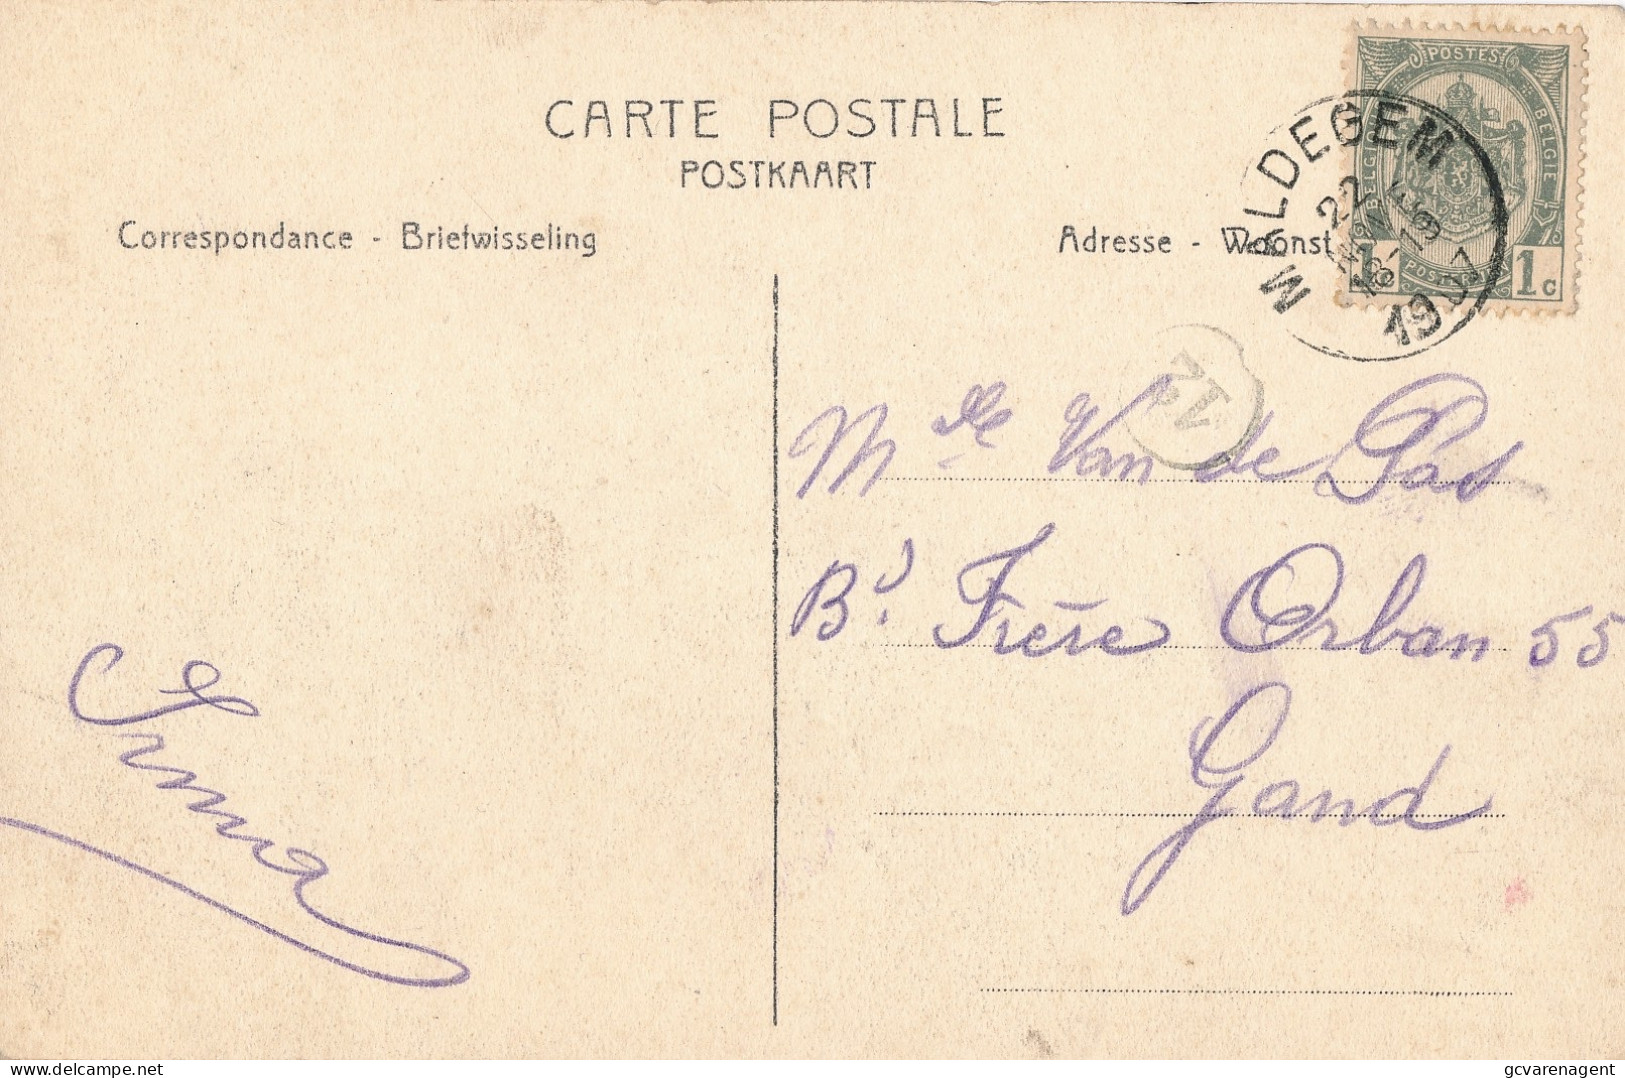 CARTE POSTALE
POSTKAART
Correspondance - Briefwisseling
Adresse - Woonst
POSTES
BELGIQUE
BELGIE
POSTERIJEN
1c 1c
MALDEGEM
22
18-19
1907
Mdlle Van de Pas
Bd. Frère Orban 55
Gand
Irma
delcampe.net
gcvarenagent